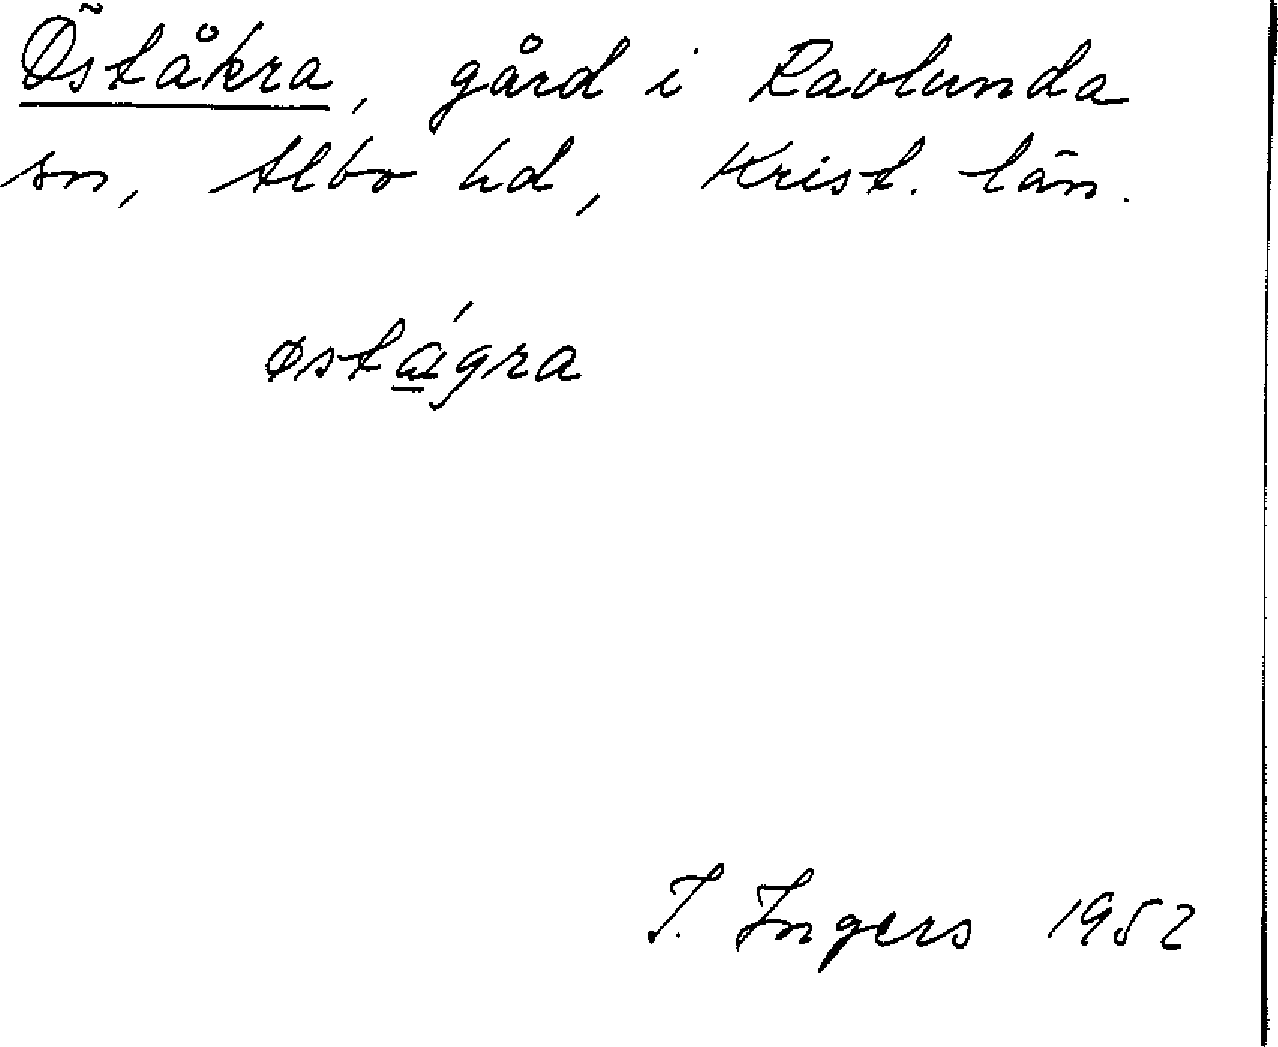 Öståkra, gård i Ravlunda
sn, Albo hd, Krist. län.
østágra
I. Ingers 1952